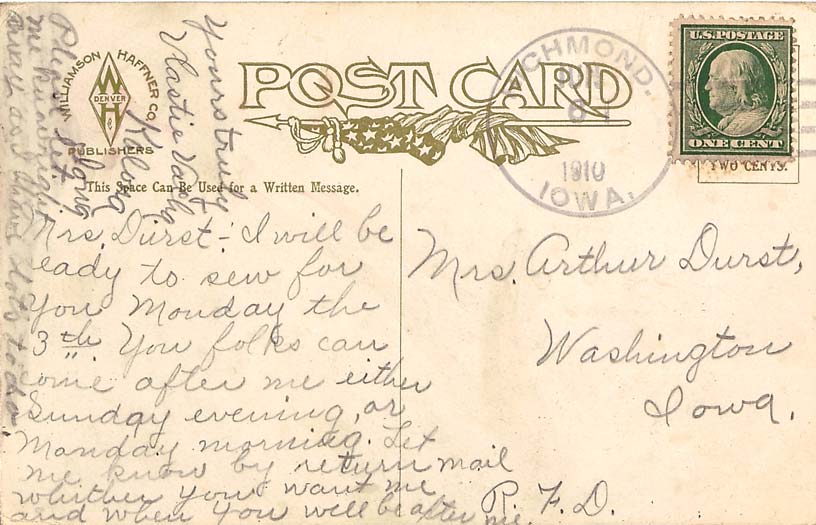 WILLIAMSON HAFFNER CO.
W
DENVER
H
PUBLISHERS
POST CARD
This Space Can Be Used for a Written Message.
U.S. POSTAGE
ONE CENT
TWO CENTS.
RICHMOND.
1910
IOWA.
Mrs. Durst:- I will be
ready to sew for
you Monday the
3th You folks can
come after me either
Sunday evening, or
Monday morning. Let
me know by return mail
whither you want me
and when you will be after me
Yours truly
Kalona
Iowa
Please let
me know right
away as I have lots to do.
Mrs. Arthur Durst,
Washington
Iowa.
R. F. D.